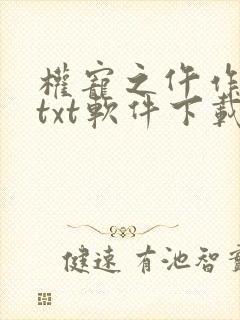 權寵之仵作
txt軟件下載
健速 有池智